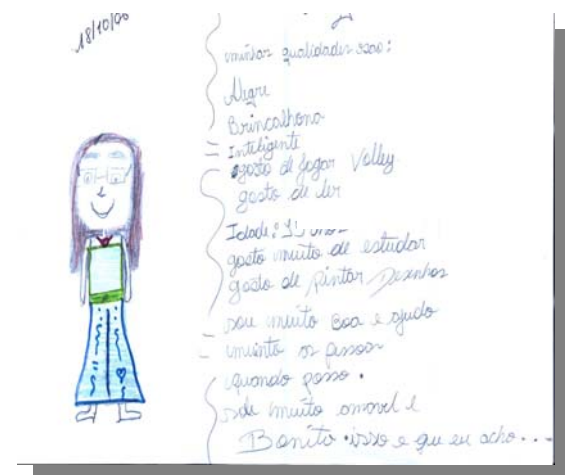 18/10/00
minhas qualidades são:
Alegre
Brincalhona
Inteligente
gosto de jogar Volley
gosto de ler
Idade: 11 anos
gosto muito de estudar
gosto de pintar Desenhos
sou muito Boa e ajudo
muinto as pessoas
quando posso.
sou muito amavel e
Bonita isso e que eu acho...